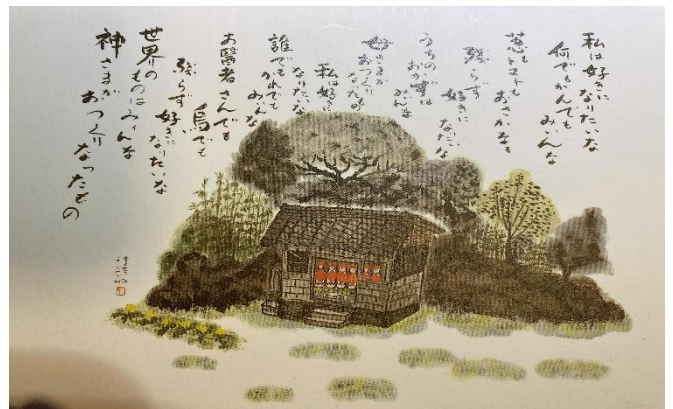 私は好きに
なりたいな
何でもかんでも
みいんな
葱もトマトも
おさかなも
残らず
好きに
なりたいな
うちの
おかずは
みいんな
母さまが
おつくりに
なったもの
私は好きに
なりたいな
誰でもかれでも
みいんな
お醫者さんでも
烏でも
残らず好きに
なりたいな
世界の
ものはみィんな
神さまが
おつくりになったもの